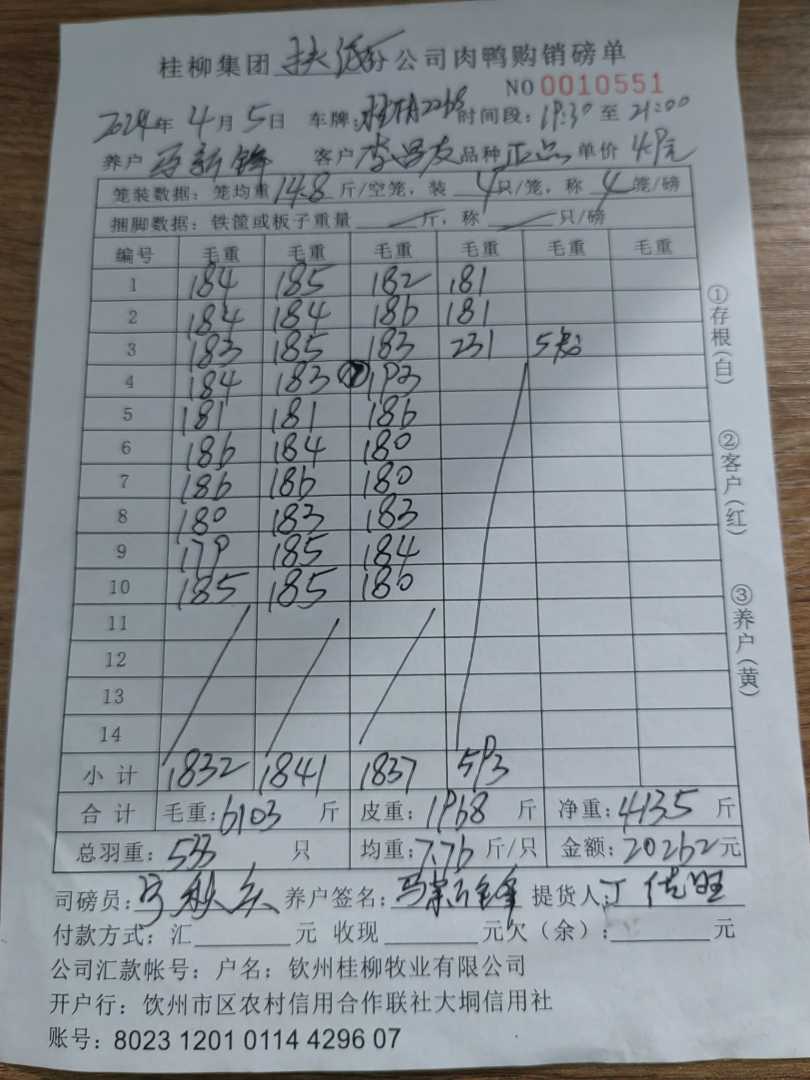 桂柳集团 扶绥 公司肉鸭购销磅单
NO 0010551
2024年 4月 5日 车牌: 时间段: 19:30 至 21:00
养户 客户 李昌友 品种 正品 单价 4.9元
笼装数据: 笼均重 14.8 斤/空笼, 装 4只/笼, 称 4 笼/磅
捆脚数据: 铁筐或板子重量 斤, 称 只/磅
编号 毛重 毛重 毛重 毛重 毛重 毛重
1 184 185 182 181
2 184 184 186 181
3 183 185 183 231 5笼
4 184 183 193
5 181 181 186
6 186 184 180
7 186 186 180
8 180 183 183
9 179 185 184
10 185 185 180
11
12
13
14
小计 1832 1841 1837 593
合计 毛重: 6103 斤 皮重: 1968 斤 净重: 4135 斤
总羽重: 533 只 均重: 7.76 斤/只 金额: 20262元
司磅员: 养户签名: 马新锋 提货人: 丁佐旺
付款方式: 汇 元 收现 元欠(余): 元
公司汇款帐号: 户名: 钦州桂柳牧业有限公司
开户行: 饮州市区农村信用合作联社大垌信用社
账号: 8023 1201 0114 4296 07
①存根(白)
②客户(红)
③养户(黄)